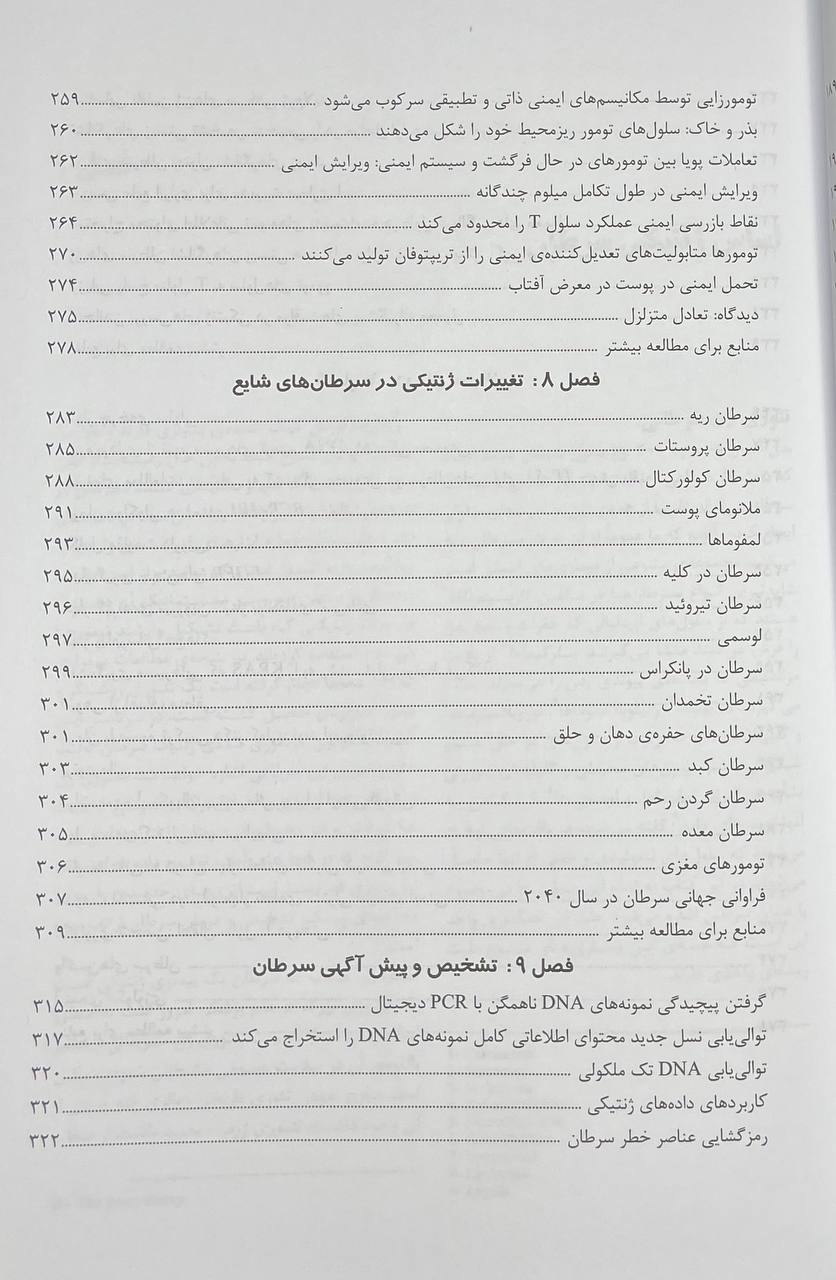 تومورزایی توسط مکانیسم‌های ایمنی ذاتی و تطبیقی سرکوب می‌شود ..... ۲۵۹
بذر و خاک: سلول‌های تومور ریزمحیط خود را شکل می‌دهند ..... ۲۶۰
تعاملات پویا بین تومورهای در حال فرگشت و سیستم ایمنی: ویرایش ایمنی ..... ۲۶۲
ویرایش ایمنی در طول تکامل میلوم چندگانه ..... ۲۶۳
نقاط بازرسی ایمنی عملکرد سلول T را محدود می‌کند ..... ۲۶۴
تومورها متابولیت‌های تعدیل‌کننده‌ی ایمنی را از تریپتوفان تولید می‌کنند ..... ۲۷۰
تحمل ایمنی در پوست در معرض آفتاب ..... ۲۷۴
دیدگاه: تعادل متزلزل ..... ۲۷۵
منابع برای مطالعه بیشتر ..... ۲۷۸
فصل ۸: تغییرات ژنتیکی در سرطان‌های شایع
سرطان ریه ..... ۲۸۳
سرطان پروستات ..... ۲۸۵
سرطان کولورکتال ..... ۲۸۸
ملانومای پوست ..... ۲۹۱
لمفوماها ..... ۲۹۳
سرطان در کلیه ..... ۲۹۵
سرطان تیروئید ..... ۲۹۶
لوسمی ..... ۲۹۷
سرطان در پانکراس ..... ۲۹۹
سرطان تخمدان ..... ۳۰۱
سرطان‌های حفره‌ی دهان و حلق ..... ۳۰۱
سرطان کبد ..... ۳۰۳
سرطان گردن رحم ..... ۳۰۴
سرطان معده ..... ۳۰۵
تومورهای مغزی ..... ۳۰۶
فراوانی جهانی سرطان در سال ۲۰۴۰ ..... ۳۰۷
منابع برای مطالعه بیشتر ..... ۳۰۹
فصل ۹: تشخیص و پیش آگهی سرطان
گرفتن پیچیدگی نمونه‌های DNA ناهمگن با PCR دیجیتال ..... ۳۱۵
توالی‌یابی نسل جدید محتوای اطلاعاتی کامل نمونه‌های DNA را استخراج می‌کند ..... ۳۱۷
توالی‌یابی DNA تک ملکولی ..... ۳۲۰
کاربردهای داده‌های ژنتیکی ..... ۳۲۱
رمزگشایی عناصر خطر سرطان ..... ۳۲۲